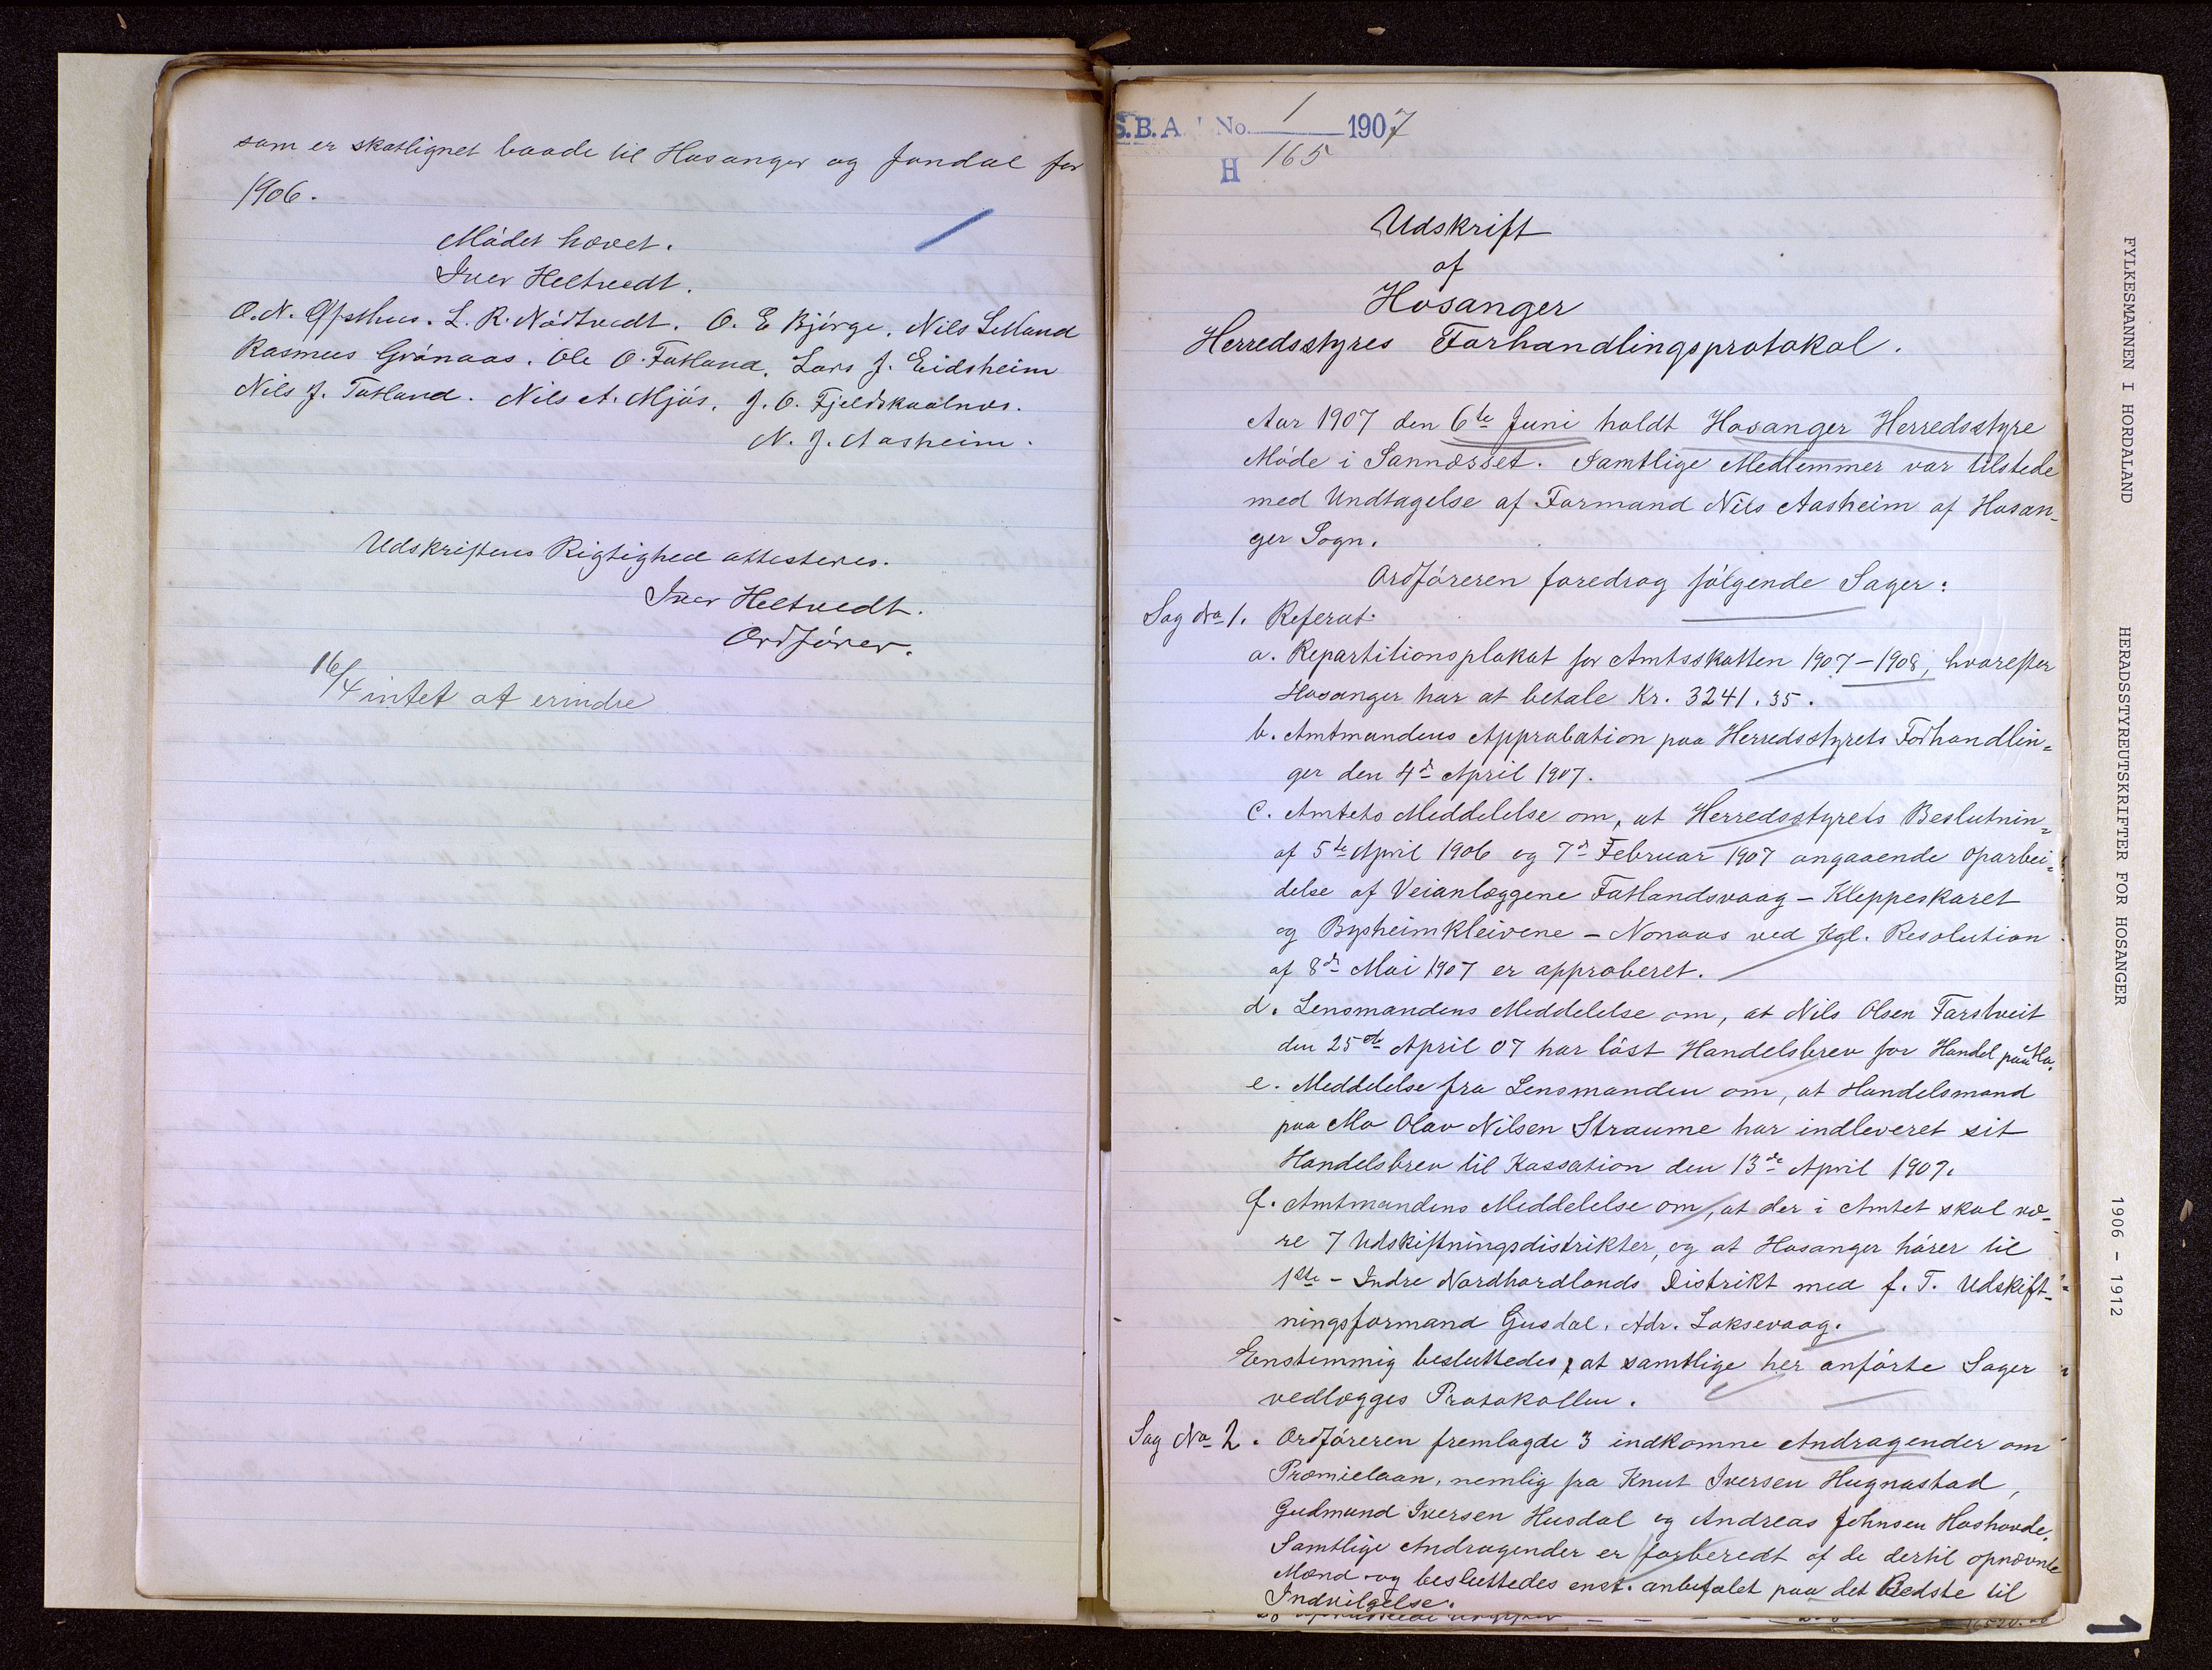 som er skatlignet baade til Hosanger og Jondal for
1906.
Mödet hævet.
Iver Heltvedt.
O. N. Ypsthus. L. R. Nödtvedt. O. E Björge. Nils Lilland
Rasmus Grönaas. Ole O. Fatland. Lars J. Eidsheim
Nils J. Tatland. Nils A. Mjös. J. O. Fjeldskaalnes.
N. J. Aasheim.
Udskriftens Rigtighed attesteres.
Iver Heltvedt.
Ordförer.
16/4 intet at erindre
S.B.A. J No. 1 1907
H 165
Udskrift
af
Hosanger
Herredsstyres Forhandlingsprotokol.
Aar 1907 den 6te Juni holdt Hosanger Herredsstyre
Möde i Sannæsset. Samtlige Medlemmer var tilstede
med Undtagelse af Formand Nils Aasheim af Hosan-
ger Sogn.
Ordföreren foredrog fölgende Sager:
Sag No 1. Referat:
a. Repartitionsplakat for Amtsskatten 1907-1908, hvorefter
Hosanger har at betale Kr. 3241.35.
b. Amtmandens Approbation paa Herredsstyrets Forhandlin=
ger den 4de April 1907.
c. Amtets Meddelelse om, at Herredsstyrets Beslutnin=
af 5te April 1906 og 7de Februar 1907 angaaende Oparbei=
delse af Veianlæggene Fatlandsvaag - Kleppeskaret
og Bysheimkleivene - Nonaas ved kgl. Resolution
af 8de Mai 1907 er approberet.
d. Lensmandens Meddelelse om, at Nils Olsen Farstveit
den 25de April 07 har löst Handelsbrev for Handel paa Mo.
e. Meddelelse fra Lensmanden om, at Handelsmand
paa Mo Olav Nilsen Straume har indleveret sit
Handelsbrev til Kassation den 13de April 1907.
f. Amtmandens Meddelelse om, at der i Amtet skal væ-
re 7 Udskiftningsdistrikter, og at Hosanger hörer til
1ste - Indre Nordhordlands Distrikt med f. T. Udskift-
ningsformand Gusdal. Adr. Laksevaag.
Enstemmig besluttedes, at samtlige her anförte Sager
vedlægges Protokollen.
Sag No 2. Ordföreren fremlagde 3 indkomne Andragender om
Præmielaan, nemlig fra Knut Iversen Hugnastad,
Gudmund Iversen Husdal og Andreas Johnsen Hoshovde.
Samtlige Andragender er forberedt af de dertil opnævnte
Mænd og besluttedes enst. anbefalet paa det Bedste til
Indvilgelse.
FYLKESMANNEN I HORDALAND
HERADSSTYREUTSKRIFTER FOR HOSANGER
1906 - 1912
1